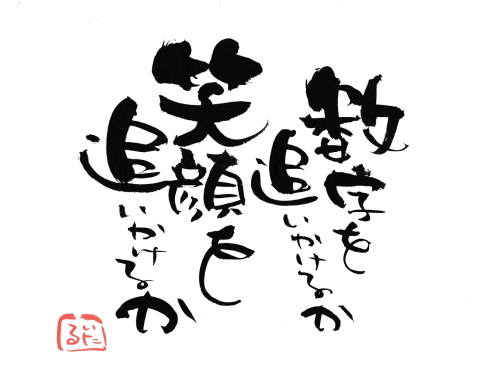 数字を
追いかけるのか
笑顔を
追いかけるか